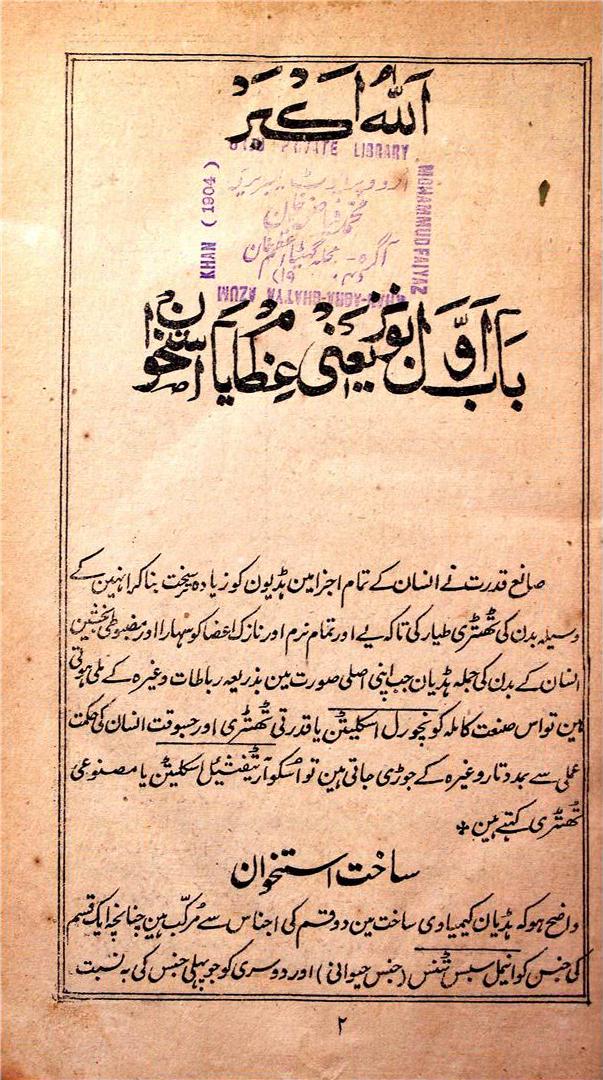 اَللهُ اَكْبَرْ
URDU PRIVATE LIBRARY
اردو پرایوٹ لیبریری
محمد فیاض خان
آگرہ - محلہ گھٹیا اعظم خان
KHAN (1904)
MOHAMMUD FAIYAZ
KHAN-AGRA-GHATYA AZUM
بَاب اَوَّل بونز یَعْنی عِظام یا استخوان
صانع قدرت نے انسان کے تمام اجزا مین ہڈیون کو زیادہ سخت بنا کر انہین کے
وسیلہ بدن کی ٹھٹری طیار کی تاکہ یے اور تمام نرم اور نازک اعضا کو سہارا اور مضبوطی بخشین
انسان کے بدن کی جملہ ہڈیان جب اپنی اصلی صورت مین بذریعہ رباطات وغیرہ کے ملی ہوتی
ہین تو اس صنعت کاملہ کو نیچورل اسکلیٹن یا قدرتی ٹھٹری اور جسوقت انسان کی حکمت
عملی سے بمدد تار وغیرہ کے جوڑی جاتی ہین تو اسکو آرٹیفشیل اسکلیٹن یا مصنوعی
ٹھٹری کہتے ہین *
ساخت استخوان
واضح ہو کہ ہڈیان کیمیاوی ساخت مین دو قسم کی اجناس سے مُرکّب ہین چنانچہ ایک قسم
کی جنس کو انیمل سبس ٹنس (جنس حیوانی) اور دوسری کو جو پہلی جنس کی بہ نسبت
۲